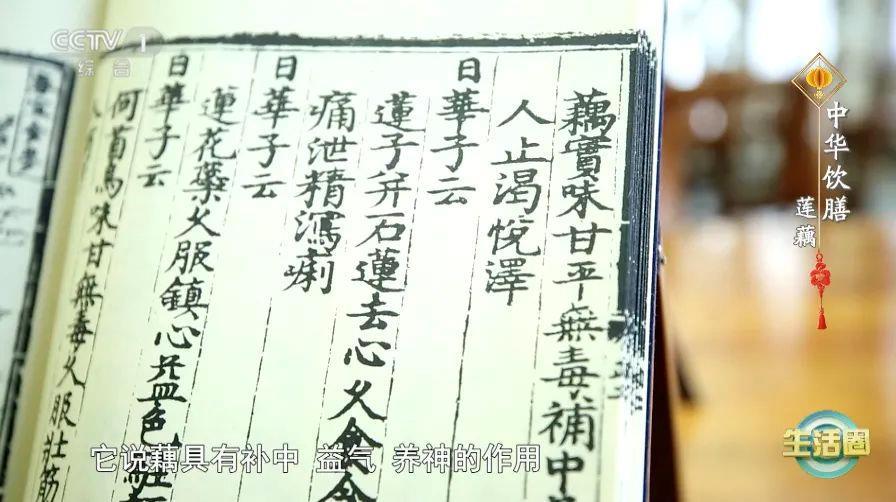 CCTV 1
综合
中华饮膳
莲藕
藕實味甘平無毒補中
人止渴悅澤
日華子云
蓮子并石蓮去心久食令
痛泄精瀉痢
日華子云
蓮花蘂久服鎮心益色
日華子云
何首烏味甘無毒久服壯筋
它说藕具有补中 益气 养神的作用
生活圈